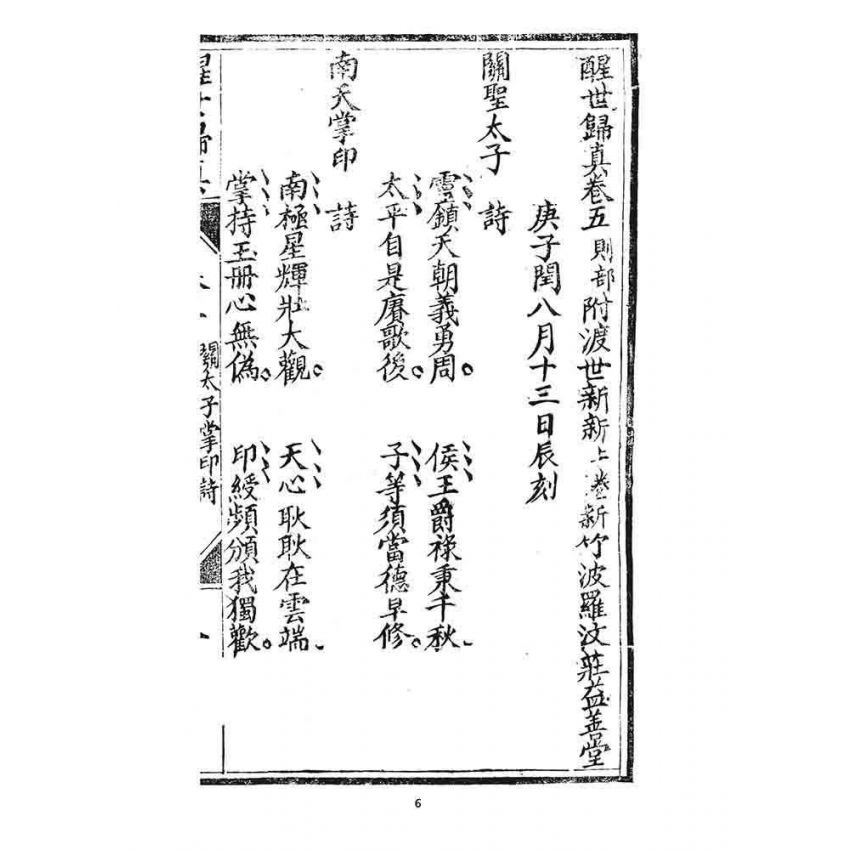 醒世歸真卷五 則部 附渡世新新上卷新竹波羅汶莊益善堂
庚子閏八月十三日辰刻
關聖太子 詩
靈鎮天朝義勇周。 侯王爵祿秉千秋、
太平自是賡歌後。 子等須當德早修。
南天掌印 詩
南極星輝壯大觀。 天心耿耿在雲端、
掌持玉冊心無偽。 印綬頻頒我獨歡。
醒世歸真
關太子掌印詩
6